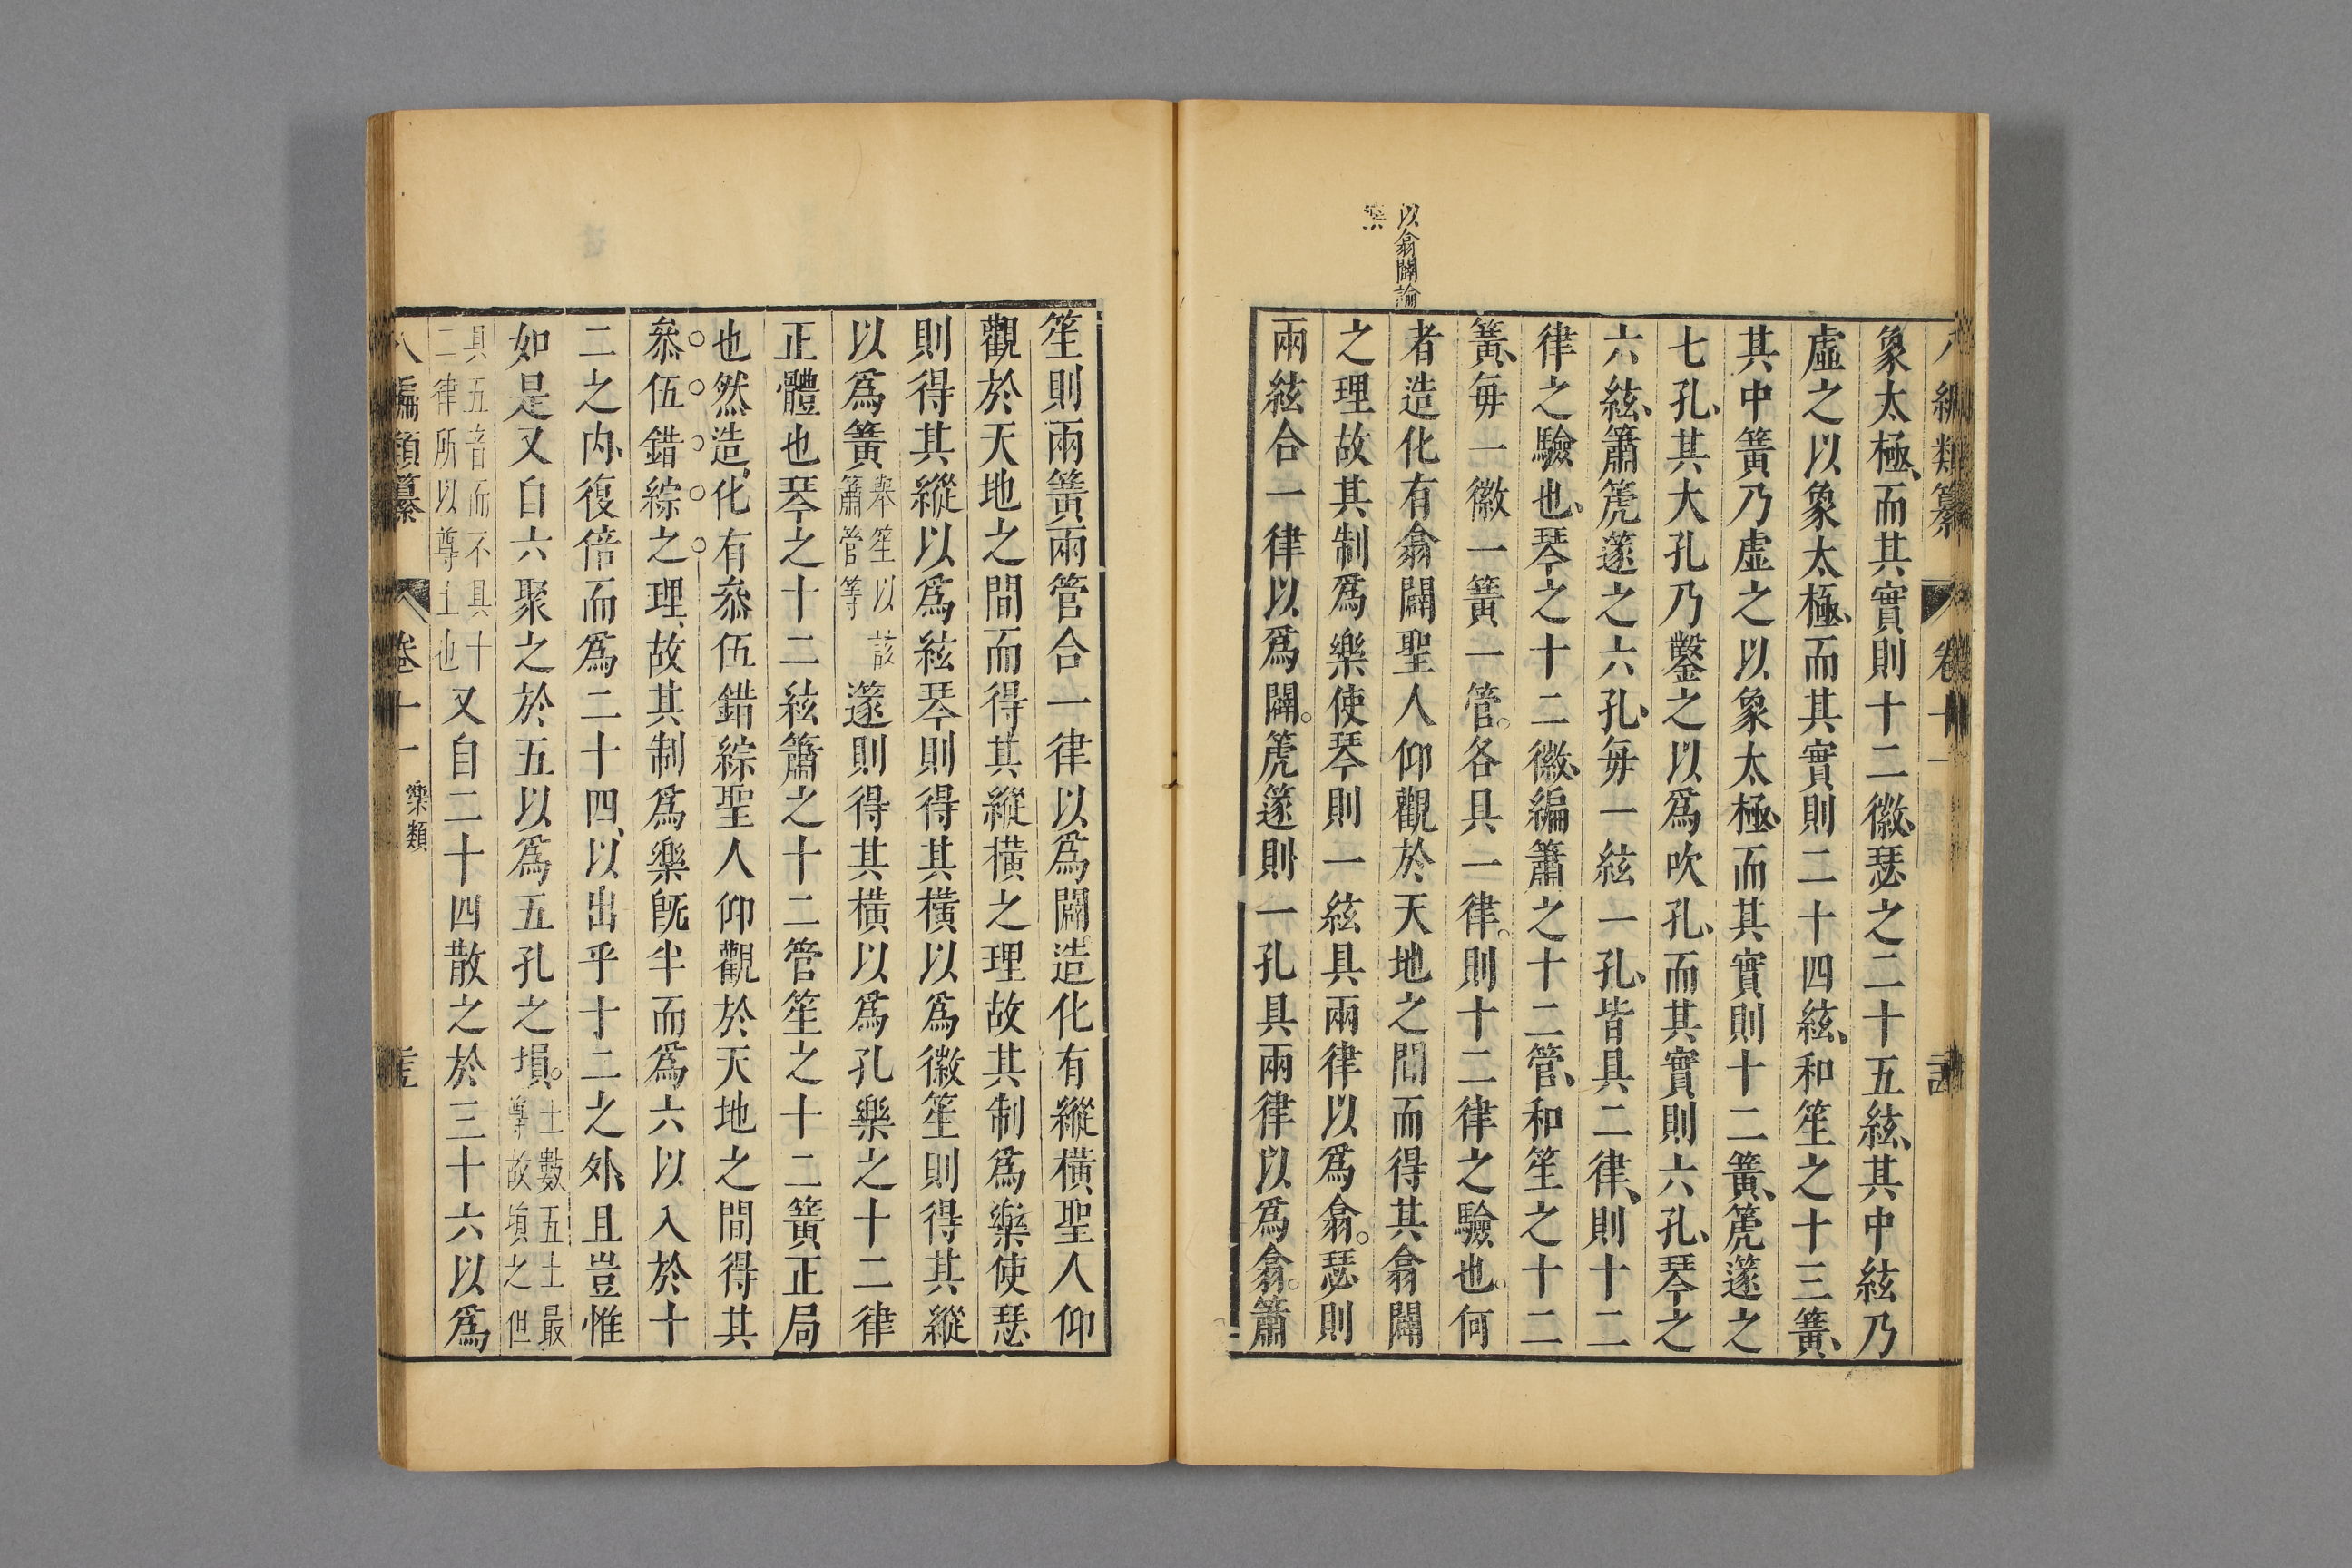 八編類纂 卷十一
象太極、而其實則十二徽、瑟之二十五絃、其中絃乃
虛之以象太極、而其實則二十四絃、和笙之十三簧、
其中簧乃虛之以象太極、而其實則十二簧、篪篴之
七孔、其大孔乃鑿之以爲吹孔、而其實則六孔、琴之
六絃、簫篪篴之六孔、毎一絃一孔、皆具二律、則十二
律之驗也、琴之十二徽、編簫之十二管、和笙之十二
簧、毎一徽一簧一管。各具一律。則十二律之驗也。何
者造化有翕闢聖人仰觀於天地之間而得其翕闢
之理故其制爲樂使琴則一絃具兩律以爲翕。瑟則
兩絃合一律以爲闢。篪篴則一孔具兩律以爲翕。簫
以翕闢論
樂
笙則兩簧兩管合一律以爲闢。造化有縱橫聖人仰
觀於天地之間而得其縱橫之理故其制爲樂使瑟
則得其縱以爲絃琴則得其橫以爲徽笙則得其縱
以爲簧舉笙以該簫管等篴則得其橫以爲孔樂之十二律
正體也琴之十二絃簫之十二管笙之十二簧正局
也然造化有叅伍錯綜聖人仰觀於天地之間得其
叅伍錯綜之理、故其制爲樂旣半而爲六以入於十
二之内、復倍而爲二十四、以出乎十二之外、且豈惟
如是又自六聚之於五以爲五孔之塤。土數五土最尊故塤之但
具五音而不具十二律所以尊土也又自二十四散之於三十六以爲
八編類纂 卷十一 樂類